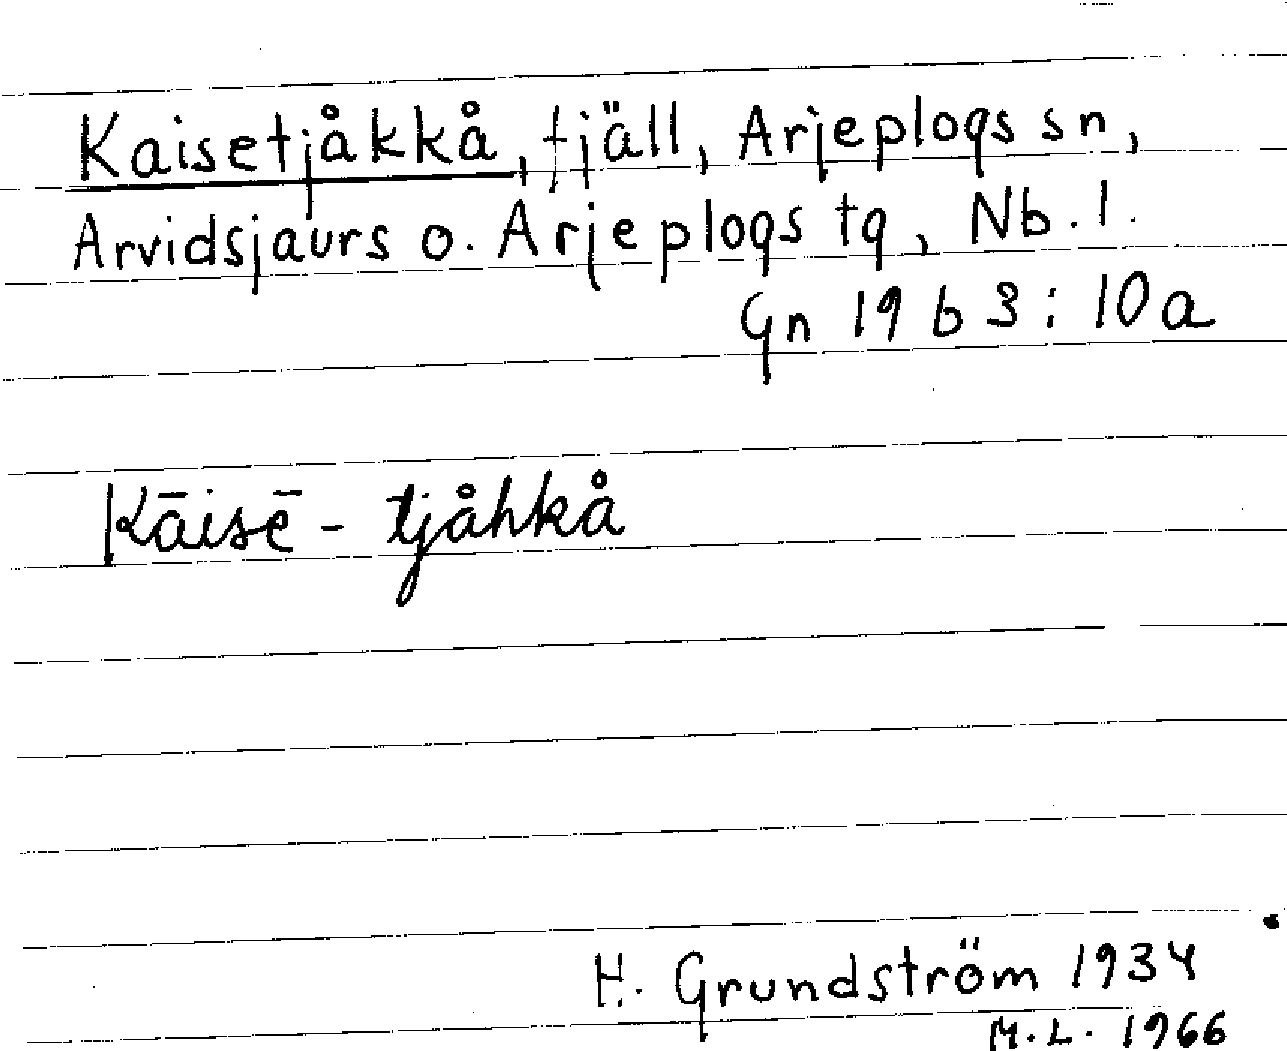 Kaisetjåkkå, fjäll, Arjeplogs sn,
Arvidsjaurs o. Arjeplogs tg, Nb. l.
Gn 1963:10a
Kāisē - tjåhkå
H. Grundström 1934
M.L. 1966